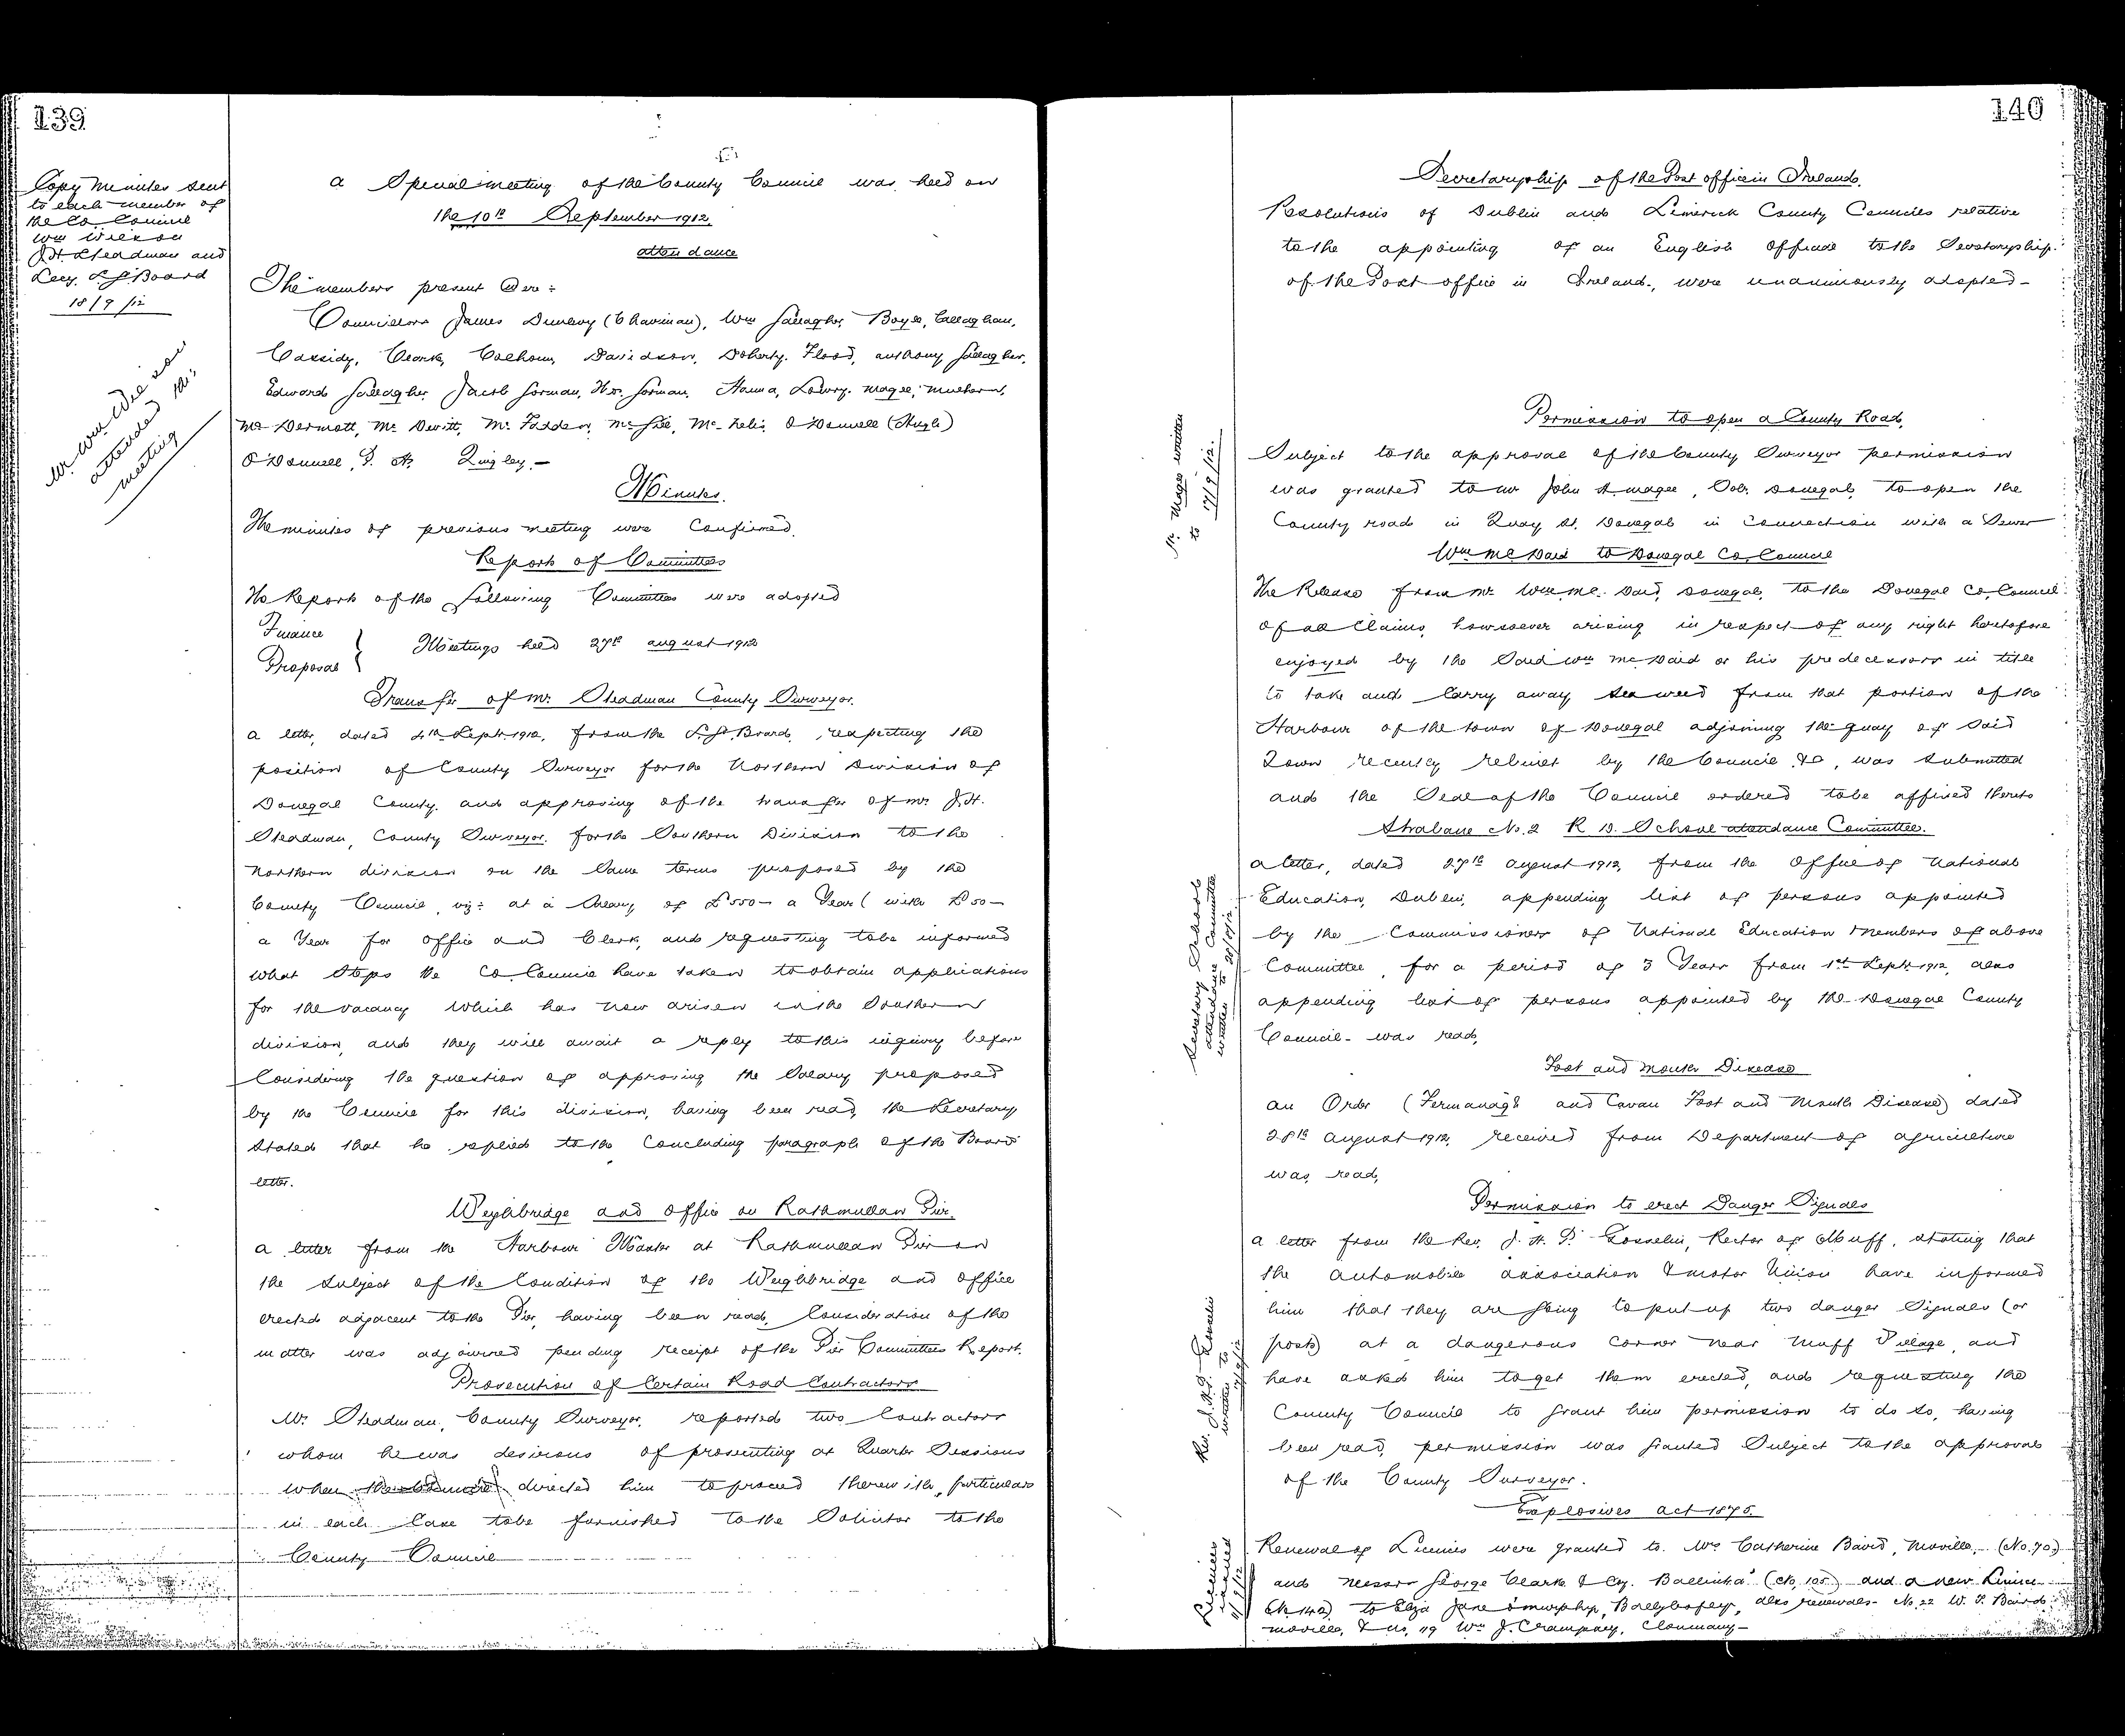 139
Copy Minutes sent
to each member of
the Co. Council
Wm Wilson
J.H. Steadman and
Secy. L.G. Board
18/9/12
Mr. Wm Wilson
attended this
meeting
A Special meeting of the County Council was held on
the 10th September 1912.
Attendance
The members present were :
Councillors James Dunlevy (Chairman), Wm Gallagher, Boyle, Callaghan,
Cassidy, Clarke, Colhoun, Davidson, Doherty, Flood, Anthony Gallagher,
Edward Gallagher, Jacob Gorman, Wm. Gorman, Hanna, Lowry, Magee, Mulhern,
McDermott, McDevitt, McFadden, McGill, McNelis, O'Donnell (Hugh)
O'Donnell, P. M. Quigley.—
Minutes.
The minutes of previous meeting were confirmed.
Reports of Committees
The Reports of the following Committees were adopted
Finance
Proposal } Meetings held 27th August 1912
Transfer of Mr. Steadman County Surveyor.
A letter, dated 4th Sept. 1912, from the L.G. Board, respecting the
position of County Surveyor for the Northern Division of
Donegal County, and approving of the transfer of Mr. J.H.
Steadman, County Surveyor for the Southern Division to the
Northern division on the same terms proposed by the
County Council, viz: at a Salary of £550— a Year (with £50—
a Year for office and Clerk, and requesting to be informed
what steps the Co. Council have taken to obtain applications
for the vacancy which has now arisen in the Southern
division, and they will await a reply to this inquiry before
Considering the question of approving the Salary proposed
by the Council for this division, having been read, the Secretary
Stated that he replied to the Concluding paragraph of the Board's
letter.
Weighbridge and Office on Rathmullan Pier.
A letter from the Harbour Master at Rathmullan Pier on
the subject of the Condition of the Weighbridge and Office
erected adjacent to the Pier, having been read, Consideration of the
matter was adjourned pending receipt of the Pier Committees Report.
Prosecution of Certain Road Contractors
Mr. Steadman, County Surveyor, reported two Contractors
whom he was desirous of prosecuting at Quarter Sessions
when the Council directed him to proceed therewith, particulars
in each Case to be furnished to the Solicitor to the
County Council
140
Secretaryship of the Post office in Ireland.
Resolutions of Dublin and Limerick County Councils relative
to the appointing of an English Official to the Secretaryship
of the Post office in Ireland, were unanimously adopted—
Permission to open a County Road.
Mr. Magee written
to 17/9/12.
Subject to the approval of the County Surveyor permission
was granted to Mr John A. Magee, Solr. Donegal, to open the
County road in Quay St. Donegal in Connection with a Sewer
Wm McDaid to Donegal Co. Council
The Release from Mr. Wm Mc.Daid, Donegal, to the Donegal Co. Council
of all Claims, howsoever arising in respect of any right heretofore
enjoyed by the Said Wm McDaid or his predecessors in title
to take and Carry away Sea weed from that portion of the
Harbour of the town of Donegal adjoining the quay of said
Town recently rebuilt by the Council &c, was submitted
and the Seal of the Council ordered to be affixed thereto
Strabane No. 2 R.D. School attendance Committee.
Secretary School
attendance Committee
written to
A letter, dated 27th August 1912, from the Office of National
Education, Dublin, appending list of persons appointed
by the Commissioners of National Education Members of above
Committee, for a period of 3 Years from 1st Sept. 1912, also
appending list of persons appointed by the Donegal County
Council— was read.
Foot and Mouth Disease
An Order (Fermanagh and Cavan Foot and Mouth Disease) dated
28th August 1912, received from Department of Agriculture
was read.
Permission to erect Danger Signals
Rev. J.H.P. Gosselin
written to
17/9/12
A letter from the Rev. J. H. P. Gosselin, Rector of Muff, stating that
the Automobile Association & Motor Union have informed
him that they are going to put up two danger Signals (or
posts) at a dangerous Corner near Muff Village, and
have asked him to get them erected, and requesting the
County Council to grant him permission to do so, having
been read, permission was granted Subject to the approval
of the County Surveyor.
Explosives Act 1875.
Licences
issued
Renewal of Licences were granted to Mrs Catherine Baird, Moville, (No. 70)
and Messrs George Clarke & Coy. Ballintra (No. 105) and a new Licence
(No 142) to Eliza Jane Dunphy, Ballybofey, also renewals— No. 22 W. J. Baird
Moville, & No. 119 Wm J. Crampsey, Clonmany—